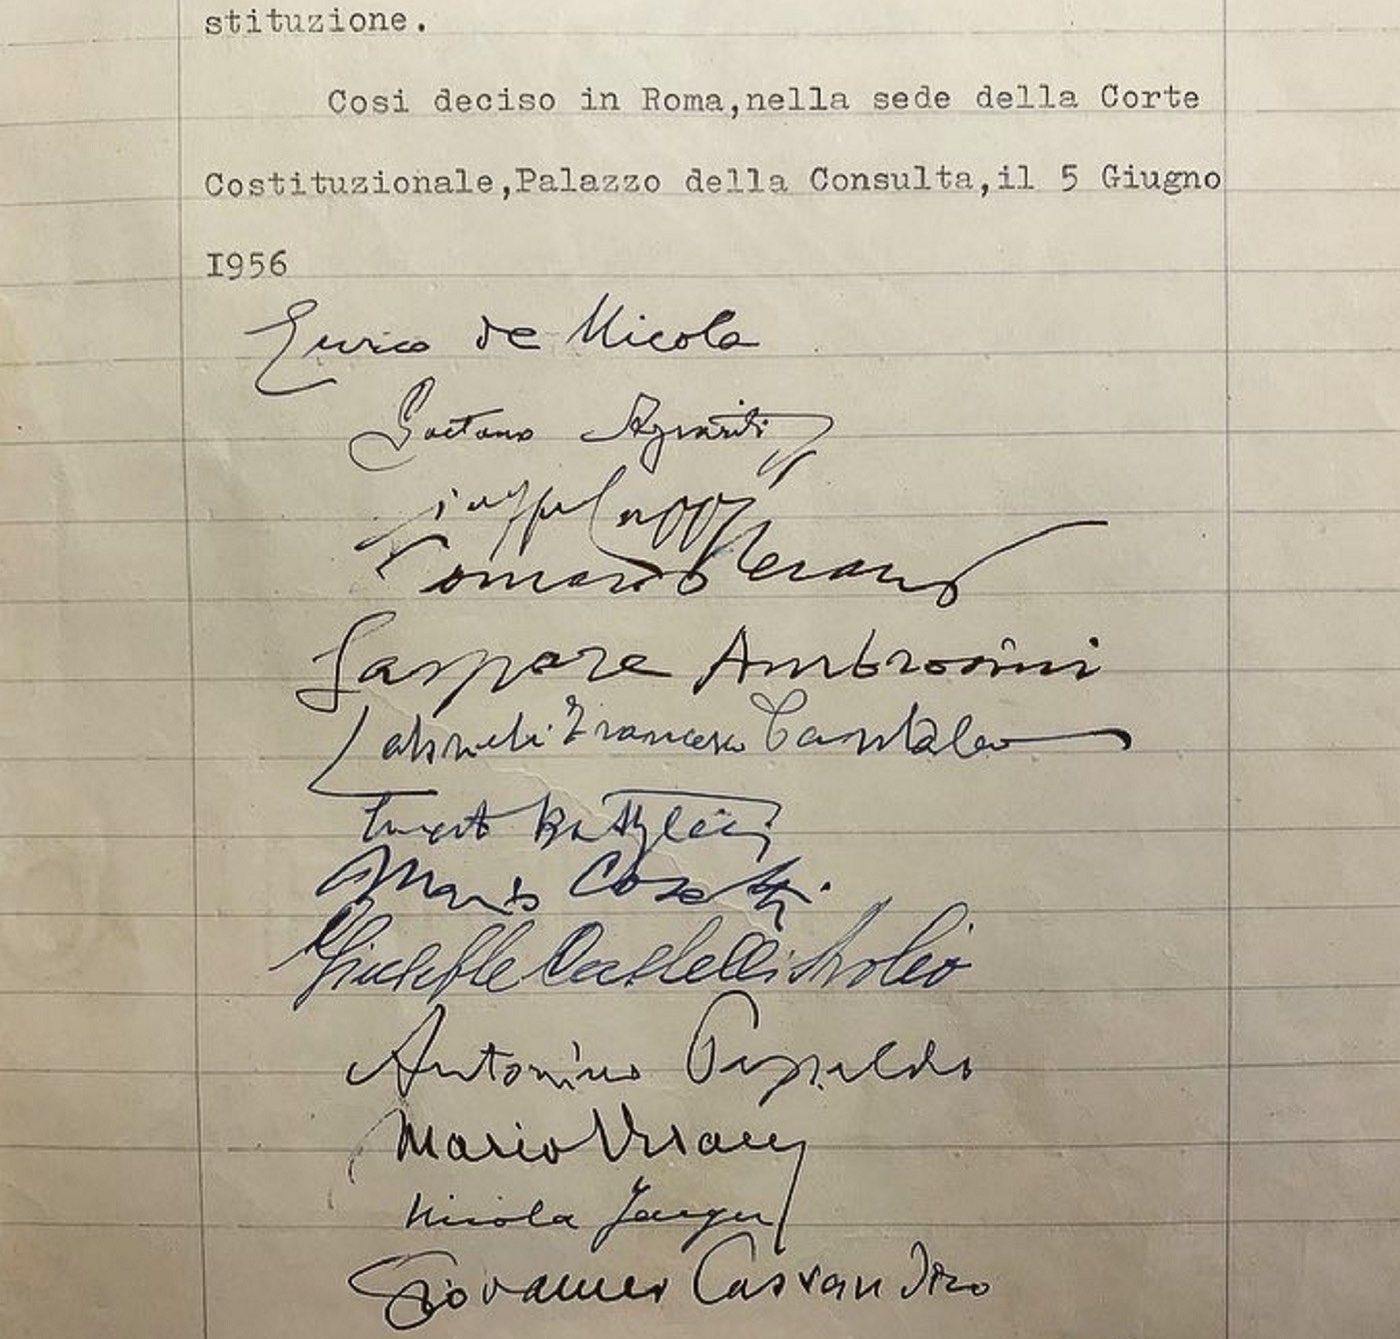 stituzione.
Cosi deciso in Roma,nella sede della Corte
Costituzionale,Palazzo della Consulta,il 5 Giugno
I956
Enrico de Nicola
Gaetano Azzariti
Tomaso Perassi
Gaspare Ambrosini
Gabrieli Francesco Pantaleo
Ernesto Battaglini
Mario Cosatti
Giuseppe Castelli Avolio
Antonino Papaldo
Mario Bracci
Nicola Jaeger
Giovanni Cassandro